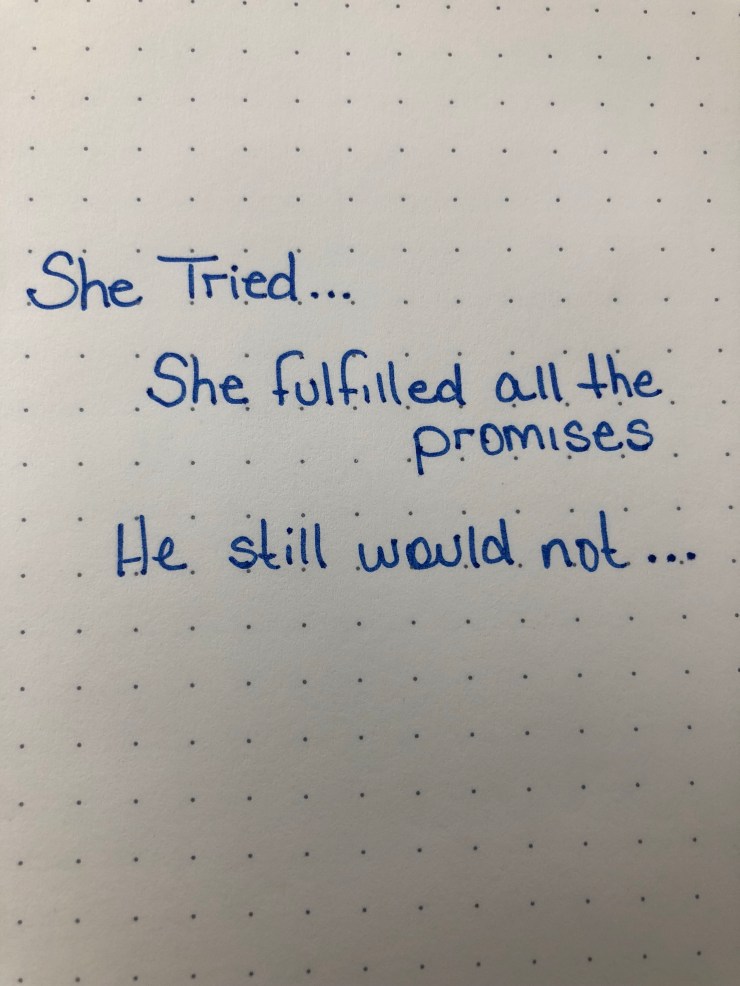 She Tried...
She fulfilled all the
promises
He still would not...